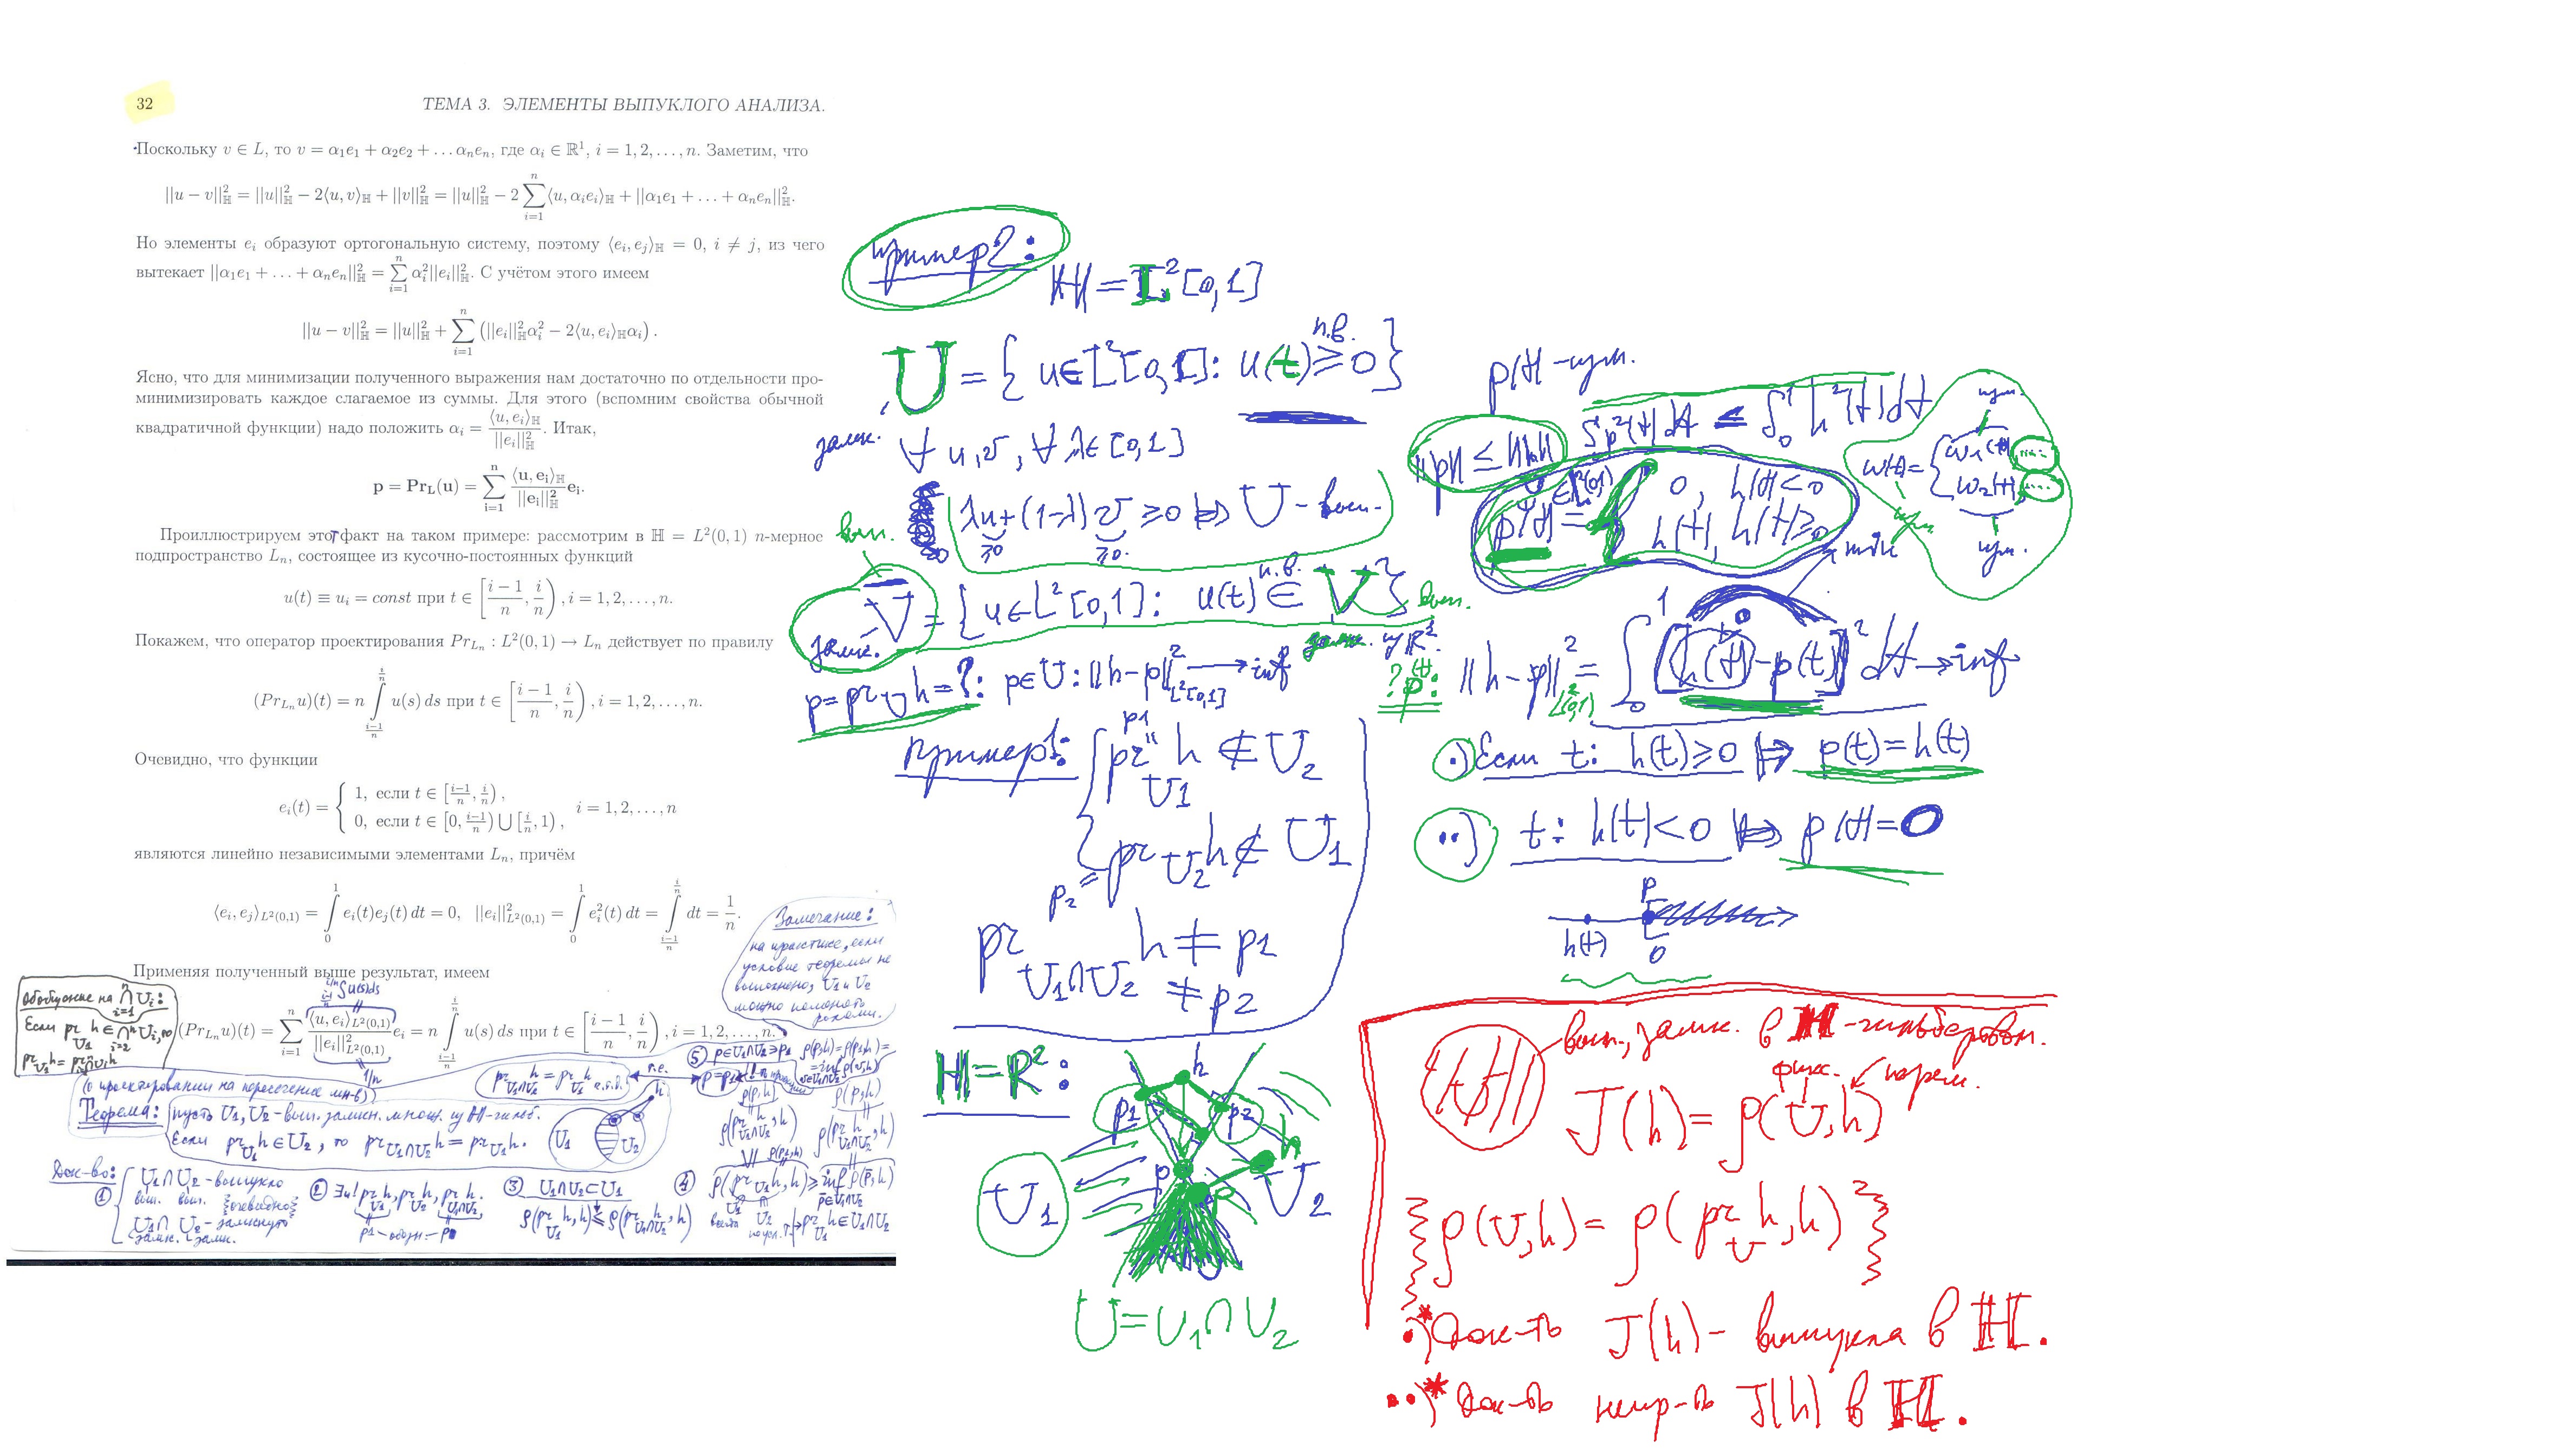 32
ТЕМА 3. ЭЛЕМЕНТЫ ВЫПУКЛОГО АНАЛИЗА.
Поскольку v ∈ L, то v = α₁e₁ + α₂e₂ + … αₙeₙ, где αᵢ ∈ ℝ¹, i = 1, 2, …, n. Заметим, что
||u − v||²_ℍ = ||u||²_ℍ − 2⟨u, v⟩_ℍ + ||v||²_ℍ = ||u||²_ℍ − 2 ∑_{i=1}^{n} ⟨u, αᵢeᵢ⟩_ℍ + ||α₁e₁ + … + αₙeₙ||²_ℍ.
Но элементы eᵢ образуют ортогональную систему, поэтому ⟨eᵢ, eⱼ⟩_ℍ = 0, i ≠ j, из чего
вытекает ||α₁e₁ + … + αₙeₙ||²_ℍ = ∑_{i=1}^{n} αᵢ²||eᵢ||²_ℍ. С учётом этого имеем
||u − v||²_ℍ = ||u||²_ℍ + ∑_{i=1}^{n} (||eᵢ||²_ℍ αᵢ² − 2⟨u, eᵢ⟩_ℍ αᵢ).
Ясно, что для минимизации полученного выражения нам достаточно по отдельности про-
минимизировать каждое слагаемое из суммы. Для этого (вспомним свойства обычной
квадратичной функции) надо положить αᵢ = ⟨u, eᵢ⟩_ℍ / ||eᵢ||²_ℍ. Итак,
p = Pr_L(u) = ∑_{i=1}^{n} ⟨u, eᵢ⟩_ℍ / ||eᵢ||²_ℍ eᵢ.
Проиллюстрируем этот факт на таком примере: рассмотрим в ℍ = L²(0, 1) n-мерное
подпространство Lₙ, состоящее из кусочно-постоянных функций
u(t) ≡ uᵢ = const при t ∈ [(i−1)/n, i/n), i = 1, 2, …, n.
Покажем, что оператор проектирования Pr_{Lₙ} : L²(0, 1) → Lₙ действует по правилу
(Pr_{Lₙ}u)(t) = n ∫_{(i−1)/n}^{i/n} u(s) ds при t ∈ [(i−1)/n, i/n), i = 1, 2, …, n.
Очевидно, что функции
eᵢ(t) = { 1, если t ∈ [(i−1)/n, i/n),
0, если t ∈ [0, (i−1)/n) ⋃ [i/n, 1), i = 1, 2, …, n
являются линейно независимыми элементами Lₙ, причём
⟨eᵢ, eⱼ⟩_{L²(0,1)} = ∫_0^1 eᵢ(t)eⱼ(t) dt = 0, ||eᵢ||²_{L²(0,1)} = ∫_0^1 eᵢ²(t) dt = ∫_{(i−1)/n}^{i/n} dt = 1/n.
Применяя полученный выше результат, имеем
(Pr_{Lₙ}u)(t) = ∑_{i=1}^{n} ⟨u, eᵢ⟩_{L²(0,1)} / ||eᵢ||²_{L²(0,1)} eᵢ = n ∫_{(i−1)/n}^{i/n} u(s) ds при t ∈ [(i−1)/n, i/n), i = 1, 2, …, n.
1/n
Замечание:
на практике, если
условие теоремы не
выполнено, U₁ и U₂
можно поменять
ролями.
Обобщение на ⋂_{i=1}^{n} Uᵢ:
Если pr_{U₁} h ∈ ⋂_{i=2}^{n} Uᵢ, то
(о проектировании на пересечение мн-в)
Теорема: пусть U₁, U₂ - вып. замкн. множ. из ℍ-гильб.
Если pr_{U₁} h ∈ U₂, то pr_{U₁∩U₂} h = pr_{U₁} h.
U₁ U₂ h
Док-во:
① U₁∩U₂ - выпукло
вып. вып. {очевидно}
U₁∩U₂ - замкнуто
замк. замк.
② ∃! pr_{U₁} h, pr_{U₂} h, pr_{U₁∩U₂} h.
③ U₁∩U₂ ⊂ U₁
ρ(pr_{U₁} h, h) ≤ ρ(pr_{U₁∩U₂} h, h)
④ ρ(pr_{U₁} h, h) ≥ inf ρ(p̄, h)
p̄∈U₁∩U₂
⑤ p ∈ U₁∩U₂ ∋ p₁
pr_{U₁∩U₂} h = pr_{U₁} h ч.т.д.
т.е.
пример 2:
ℍ = L²[0,1]
U = { u ∈ L²[0,1]: u(t) ≥ 0 } п.в.
замк. ∀ u, v, ∀ λ ∈ [0,1]
λu + (1−λ)v ≥ 0 ⇒ U - вып.
≥0 ≥0.
вып.
V = { u ∈ L²[0,1]: u(t) ∈ V } п.в. вып.
замк. замк. из ℝ¹.
p = pr_U h = ?: p ∈ U: ||h−p||²_{L²[0,1]} → inf
пример 1: { pr_{U₁} h ∉ U₂
p₁
pr_{U₂} h ∉ U₁
p₂ =
pr_{U₁∩U₂} h ≠ p₁
≠ p₂
ℍ = ℝ²:
h
p₁ p₂
p h
U₁ U₂
p
U = U₁∩U₂
p(t) - изм.
||p|| ≤ ||h|| ∫p²(t)dt ≤ ∫_0^1 h²(t)dt
∈ L²(0,1)
p(t) = { 0, h(t)<0
h(t), h(t)≥0
изм.
w(t) = { w₁(t), …
w₂(t), …
изм. изм.
min
? p(t): ||h−p||²_{L²(0,1)} = ∫_0^1 [h(t)−p(t)]² dt → inf
0
•) Если t: h(t) ≥ 0 ⇒ p(t) = h(t)
••) t: h(t) < 0 ⇒ p(t) = 0
p
h(t) 0
вып., замк. в ℍ-гильбертовом.
фикс. перем.
J(h) = ρ(U, h)
{ ρ(U, h) = ρ(pr_U h, h) }
•)* Док-ть J(h) - выпукла в ℍ.
••)* Док-ть непр-ть J(h) в ℍ.